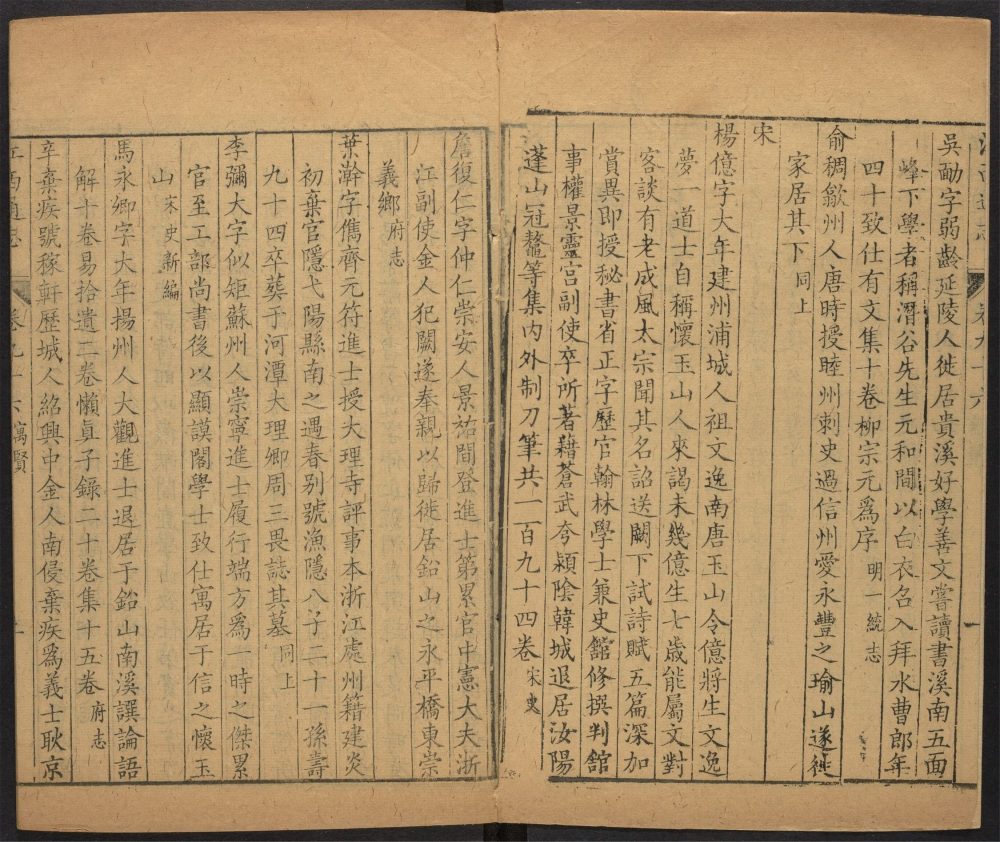 吳勔字弱齡延陵人徙居貴溪好學善文嘗讀書溪南五面
峰下學者稱潛谷先生元和間以白衣召入拜水曹郎年
四十致仕有文集十卷柳宗元爲序 明一統志
俞稠歙州人唐時授睦州刺史過信州愛永豐之瑜山遂徙
家居其下 同上
宋
楊億字大年建州浦城人祖文逸南唐玉山令億將生文逸
夢一道士自稱懷玉山人來謁未幾億生七歲能屬文對
客談有老成風太宗聞其名詔送闕下試詩賦五篇深加
賞異即授秘書省正字歷官翰林學士兼史館修撰判館
事權景靈宫副使卒所著藉蒼武夸潁陰韓城退居汝陽
蓬山冠鰲等集内外制刀筆共一百九十四卷 宋史
詹復仁字仲仁崇安人景祐間登進士第累官中憲大夫浙
江副使金人犯闕遂奉親以歸徙居鉛山之永平橋東崇
義鄉 府志
葉澣字儁齊元符進士授大理寺評事本浙江處州籍建炎
初棄官隱弋陽縣南之遇春别號漁隱八子二十一孫壽
九十四卒葬于河潭大理卿周三畏誌其墓 同上
李彌大字似矩蘇州人崇寧進士履行端方爲一時之傑累
官至工部尚書後以顯謨閣學士致仕寓居于信之懷玉
山 宋史新編
馬永卿字大年揚州人大觀進士退居于鉛山南溪譔論語
解十卷易拾遺二卷懶真子錄二十卷集十五卷 府志
辛棄疾號稼軒歷城人紹興中金人南侵棄疾爲義士耿京
江西通志
卷九十六寓賢